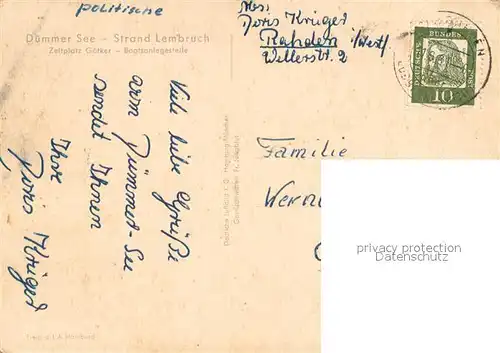 politische
Dümmer See - Strand Lembruch
Zeltplatz Götker - Bootsanlegestelle
Viele liebe Grüße
vom Dümmer-See
sendet Ihnen
Ihre
Doris Krüger
Abs.
Doris Krüger
Rahden i/Westf.
Wellerstr. 2
DEUTSCHE BUNDESPOST
10
Familie
Werner
privacy protection
Datenschutz